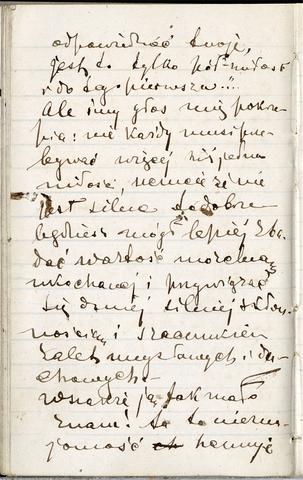 odpowiedzieć twoje,
jest to tylko pół-miłość
i do tego pierwsza"...
Ale inny głos mię pokrze-
pia: nie każdy musi prze-
bywać więcej niż jedną
miłość, nareszcie że nie
jest silna to dobrze
będziesz mógł lepiej zba-
dać wartość moralną
ukochanej i przywiązać
się do niej silniej
i szacunkiem
zalet mysłowych i du-
chowych.—
wszakże ją tak mało
znam! ta to niezna-
jomość